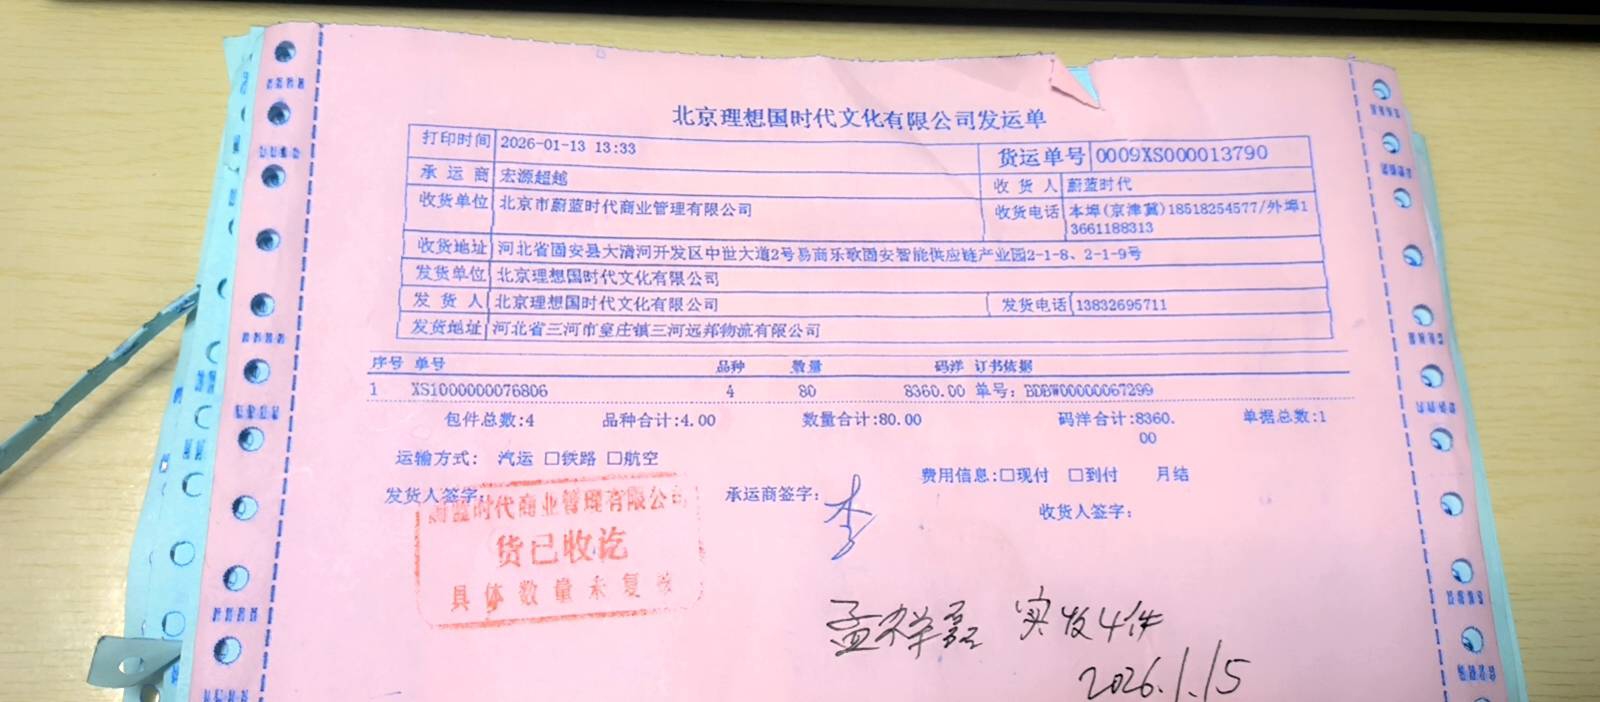 北京理想国时代文化有限公司发运单
打印时间 2026-01-13 13:33 货运单号 0009XS000013790
承运商 宏源超越 收货人 蔚蓝时代
收货单位 北京市蔚蓝时代商业管理有限公司 收货电话 本埠(京津冀)18518254577/外埠1
3661188313
收货地址 河北省固安县大清河开发区中世大道2号易商乐歌固安智能供应链产业园2-1-8、2-1-9号
发货单位 北京理想国时代文化有限公司
发货人 北京理想国时代文化有限公司 发货电话 13832695711
发货地址 河北省三河市皇庄镇三河远邦物流有限公司
序号 单号 品种 数量 码洋 订书依据
1 XS1000000076806 4 80 8360.00 单号: BDBW00000067299
包件总数:4 品种合计:4.00 数量合计:80.00 码洋合计:8360. 单据总数:1
00
运输方式: 汽运 □铁路 □航空 费用信息:□现付 □到付 月结
发货人签字: 承运商签字: 李 收货人签字:
蔚蓝时代商业管理有限公司
货已收讫
具体数量未复核
孟祥磊 实收4件
2026.1.15